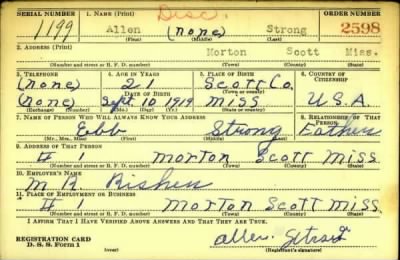 SERIAL NUMBER 1. NAME (Print) ORDER NUMBER
Disc.
1199 Allen (none) Strong 2598
(First) (Middle) (Last)
2. ADDRESS (Print)
Morton Scott Miss.
(Number and street or R. F. D. number) (Town) (County) (State)
3. TELEPHONE 4. AGE IN YEARS 5. PLACE OF BIRTH 6. COUNTRY OF CITIZENSHIP
(none) 21 Scott Co.
DATE OF BIRTH (Town or county)
(none) Sept 10 1919 Miss U.S.A.
(Exchange) (Number) (Mo.) (Day) (Yr.) (State or country)
7. NAME OF PERSON WHO WILL ALWAYS KNOW YOUR ADDRESS 8. RELATIONSHIP OF THAT PERSON
Ebb Strong Father
(Mr., Mrs., Miss) (First) (Middle) (Last)
9. ADDRESS OF THAT PERSON
# 1 Morton Scott Miss
(Number and street or R. F. D. number) (Town) (County) (State)
10. EMPLOYER'S NAME
M. R. Risher
11. PLACE OF EMPLOYMENT OR BUSINESS
# 1 Morton Scott Miss
(Number and street or R. F. D. number) (Town) (County) (State)
I AFFIRM THAT I HAVE VERIFIED ABOVE ANSWERS AND THAT THEY ARE TRUE.
REGISTRATION CARD
D. S. S. Form 1
(Registrant's signature)